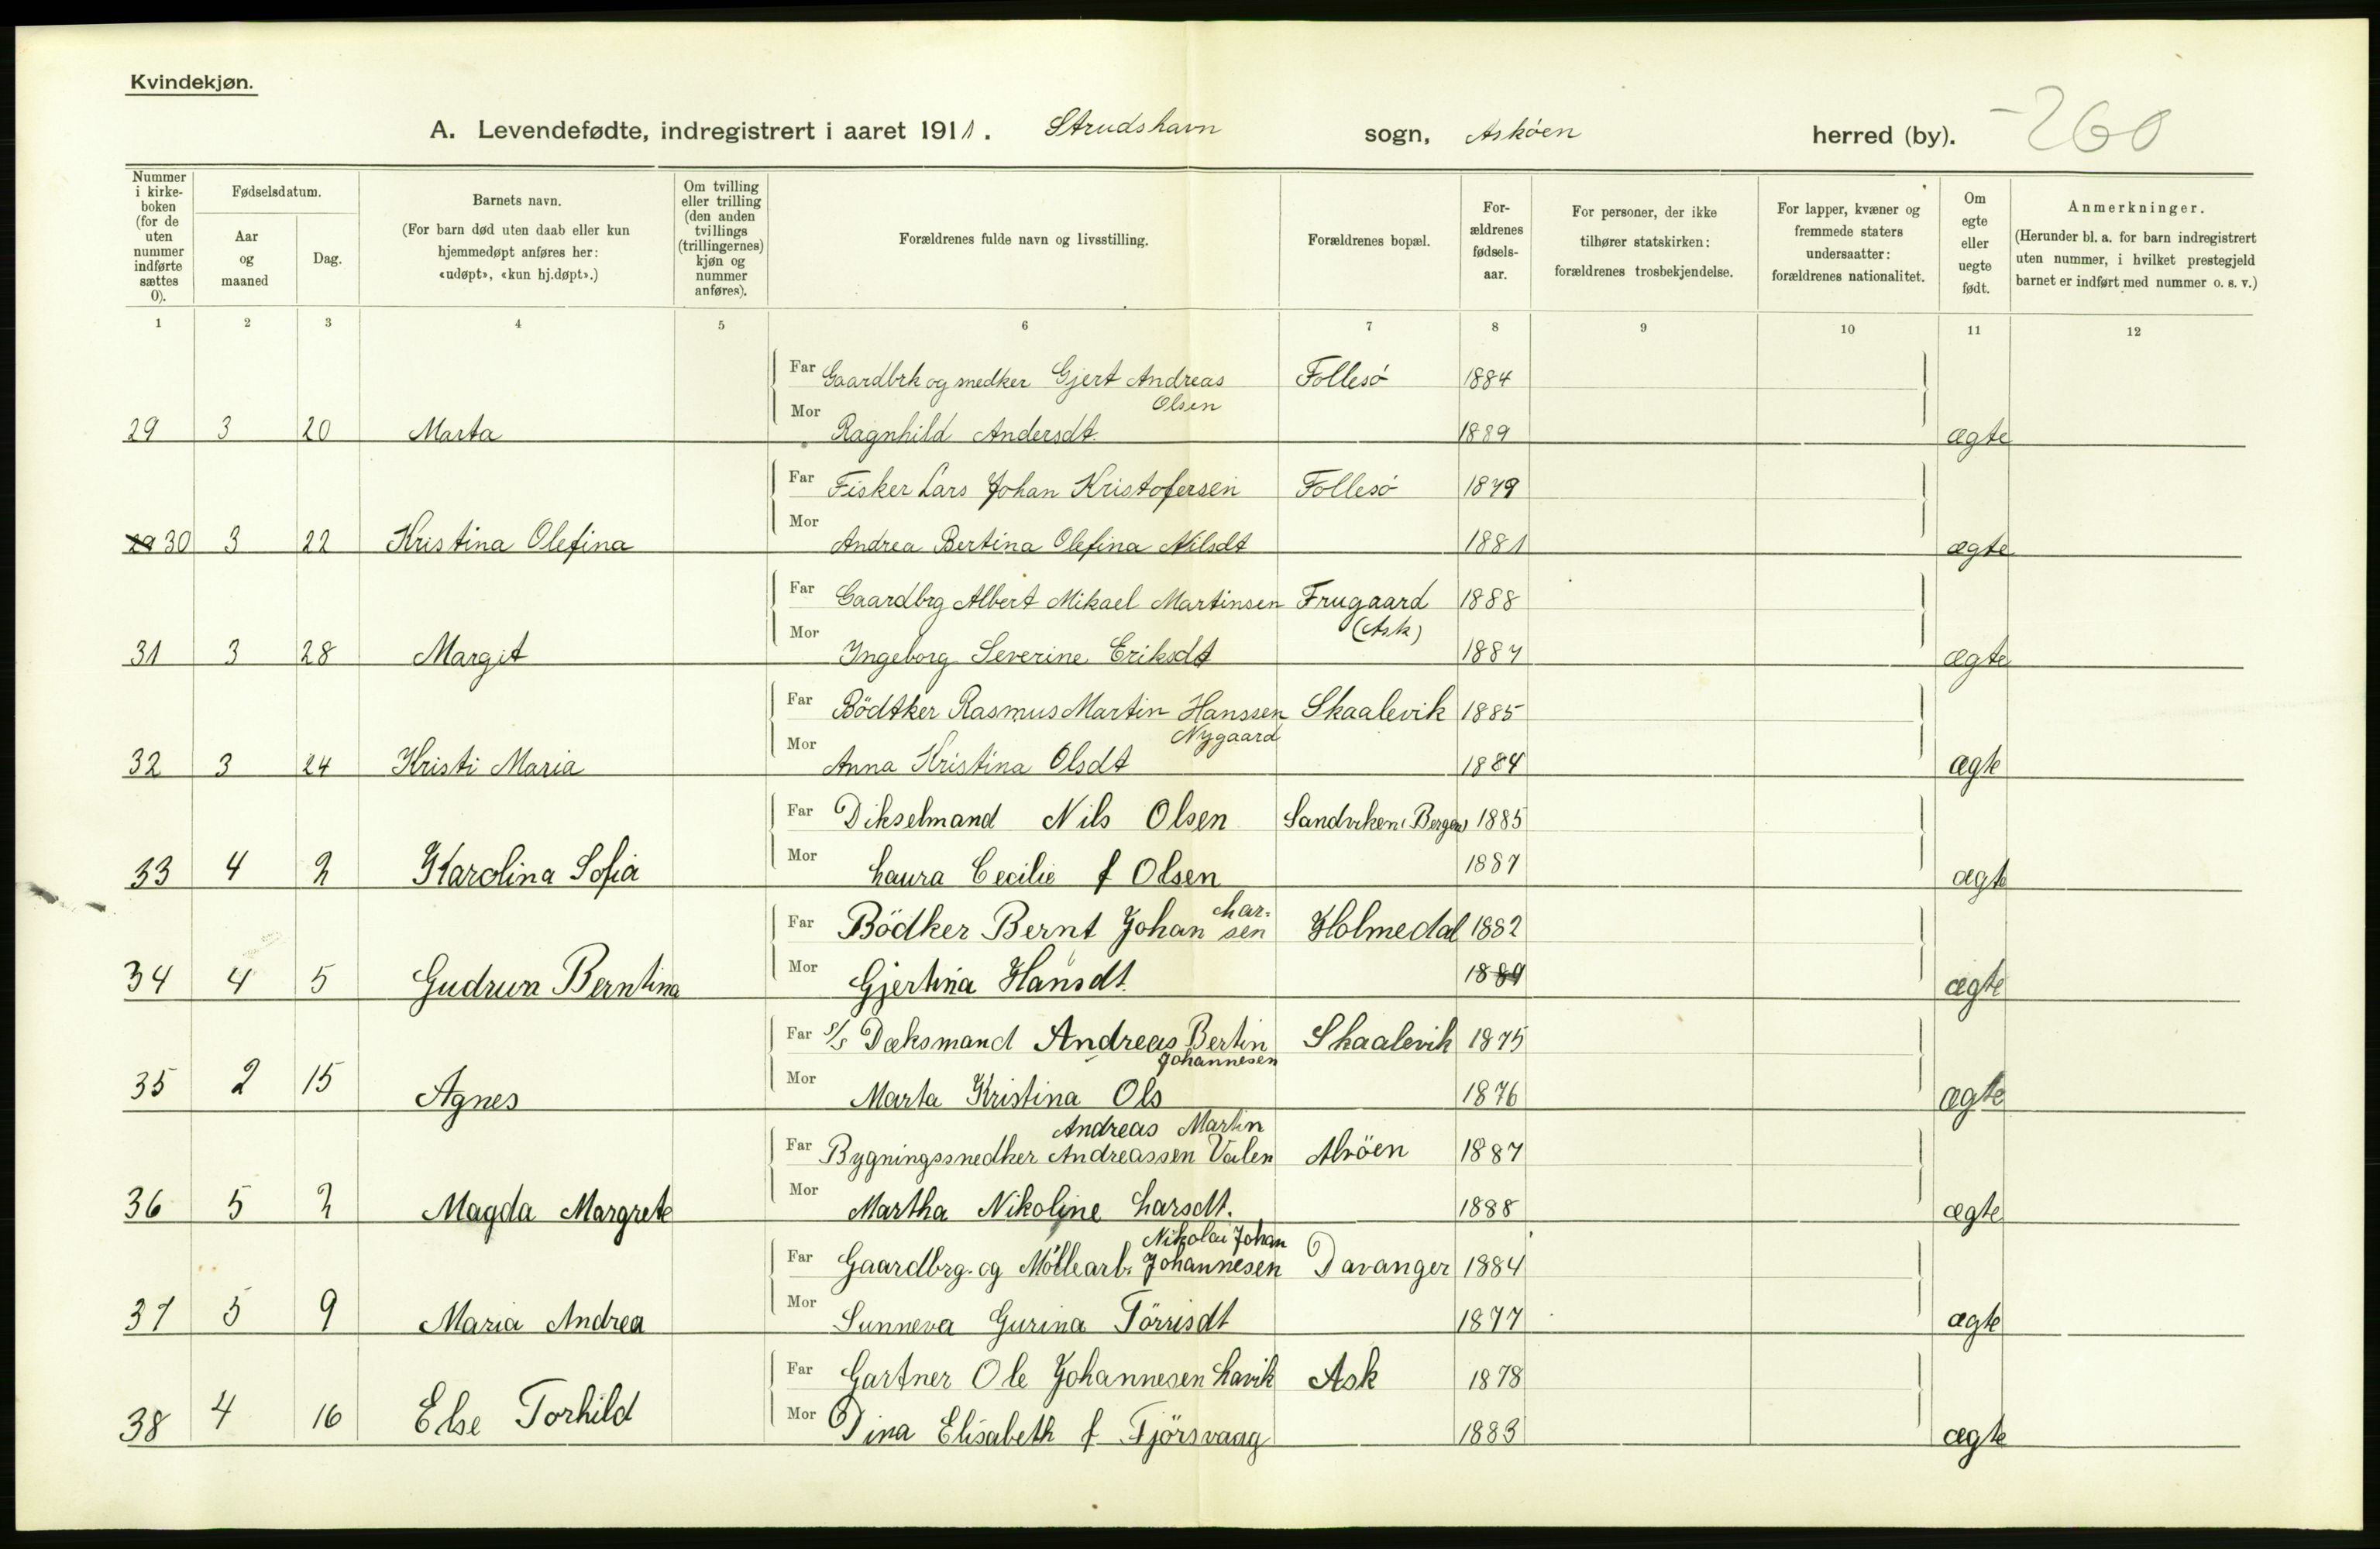 Kvindekjøn.
A. Levendefødte, indregistrert i aaret 1911. Strudshavn sogn, Askøen herred (by). 260
Nummer i kirkeboken (for de uten nummer indførte sættes 0).
Fødselsdatum.
Aar og maaned
Dag.
Barnets navn.
(For barn død uten daab eller kun hjemmedøpt anføres her: «udøpt», «kun hj.døpt».)
Om tvilling eller trilling (den anden tvillings (trillingernes) kjøn og nummer anføres).
Forældrenes fulde navn og livsstilling.
Forældrenes bopæl.
For-ældrenes fødsels-aar.
For personer, der ikke tilhører statskirken: forældrenes trosbekjendelse.
For lapper, kvæner og fremmede staters undersaatter: forældrenes nationalitet.
Om egte eller uegte født.
Anmerkninger.
(Herunder bl. a. for barn indregistrert uten nummer, i hvilket prestegjeld barnet er indført med nummer o. s. v.)
1 2 3 4 5 6 7 8 9 10 11 12
Far Gaardbrk og snedker Gjert Andreas Follesö 1884
Olsen
29 3 20 Marta Mor Ragnhild Andersdt. 1889 ægte
Far Fisker Lars Johan Kristofersen Follesö 1879
29 30 3 22 Kristina Olefina Mor Andrea Bertina Olefina Nilsdt 1881 ægte
Far Gaardbrg Albert Mikael Martinsen Frugaard 1888
(Ask)
31 3 28 Margit Mor Ingeborg Severine Eriksdt 1887 ægte
Far Bödtker Rasmus Martin Hanssen Skaalevik 1885
Nygaard
32 3 24 Kristi Maria Mor Anna Kristina Olsdt 1884 ægte
Far Dikselmand Nils Olsen Sandviken (Bergen) 1885
33 4 2 Karolina Sofia Mor Laura Cecilie f Olsen 1887 ægte
Far Bödker Bernt Johan Larsen Holmedal 1882
34 4 5 Gudrun Berntina Mor Gjertina Hansdt. 1889 ægte
Far s/s Dæksmand Andreas Bertin Skaalevik 1875
Johannesen
35 2 15 Agnes Mor Marta Kristina Ols 1876 ægte
Andreas Martin
Far Bygningssnedker Andreassen Valen Alvöen 1887
36 5 2 Magda Margrete Mor Martha Nikoline Larsdt. 1888 ægte
Nikolai Johan
Far Gaardbrg. og Möllearb. Johannesen Davanger 1884
37 5 9 Maria Andrea Mor Sunneva Gurina Törrisdt 1877 ægte
Far Gartner Ole Johannesen Lavik Ask 1878
38 4 16 Else Torhild Mor Dina Elisabeth f Fjörsvaag 1883 ægte